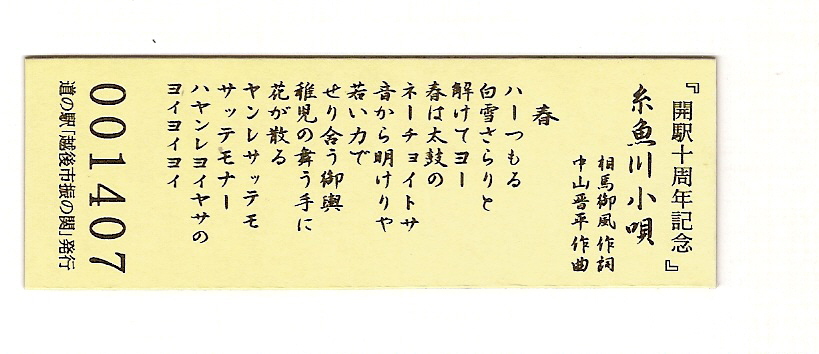 『開駅十周年記念』
糸魚川小唄
相馬御風作詞
中山晋平作曲
春
ハーつもる
白雪さらりと
解けてヨー
春は太鼓の
ネーチョイトサ
音から明けりや
若い力で
せり合う御輿
稚児の舞う手に
花が散る
ヤンレサッテモ
サッテモナー
ハヤンレヨイヤサの
ヨイヨイヨイ
001407
道の駅「越後市振の関」発行